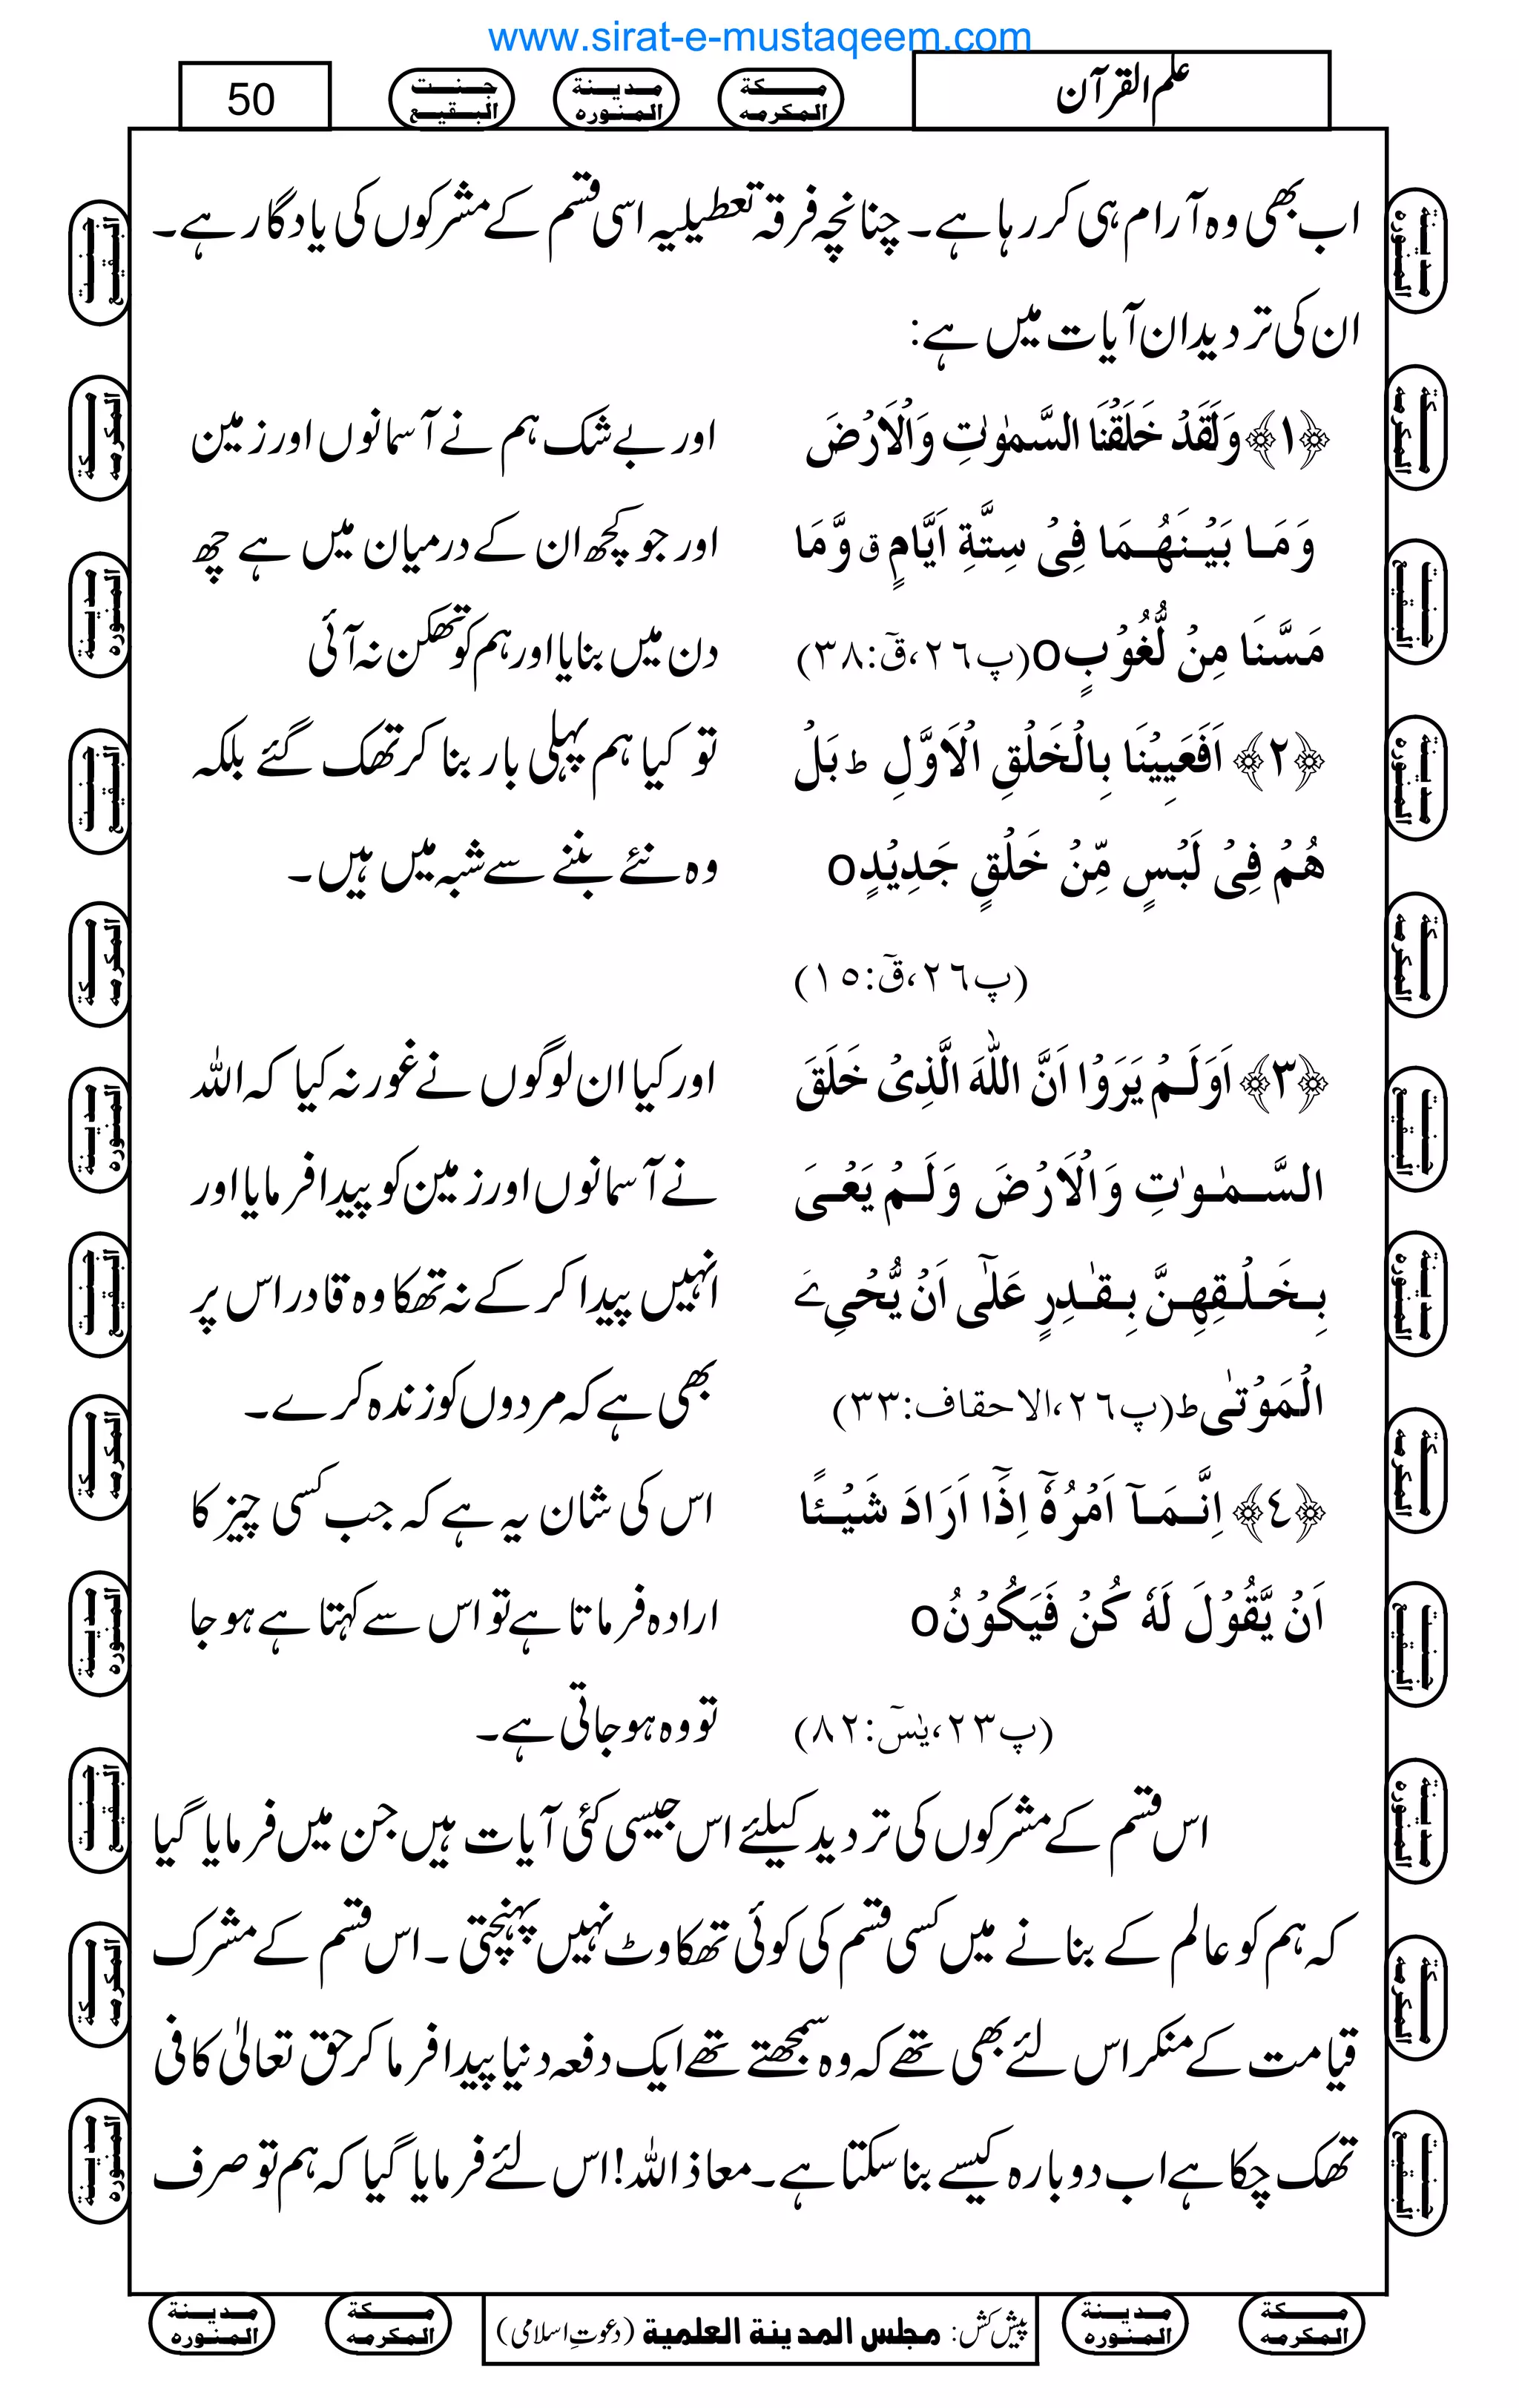 www.sirat-e-mustaqeem.com
علم القرآن
مـكة المكرمه
مـدينة المنوره
جنت البقيع
50
اب بھی وہ آرام ہی کر رہا ہے۔ چنانچہ فرقہ تعطیلیہ اسی قسم کے مشرکوں کی یادگار ہے۔
ان کی تردید ان آیات میں ہے:
﴿۱﴾ وَلَقَدْ خَلَقْنَا السَّمٰوٰتِ وَالْاَرْضَ
وَمَا بَیْنَهُمَا فِیْ سِتَّةِ اَیَّامٍ ق وَّمَا
مَسَّنَا مِنْ لُّغُوْبٍ o (پ۲۶،قٓ:۳۸)
اور بے شک ہم نے آسمانوں اور زمین
اور جو کچھ ان کے درمیان میں ہے چھ
دن میں بنایا اور ہم کو تھکن نہ آئی
﴿۲﴾ اَفَعَیِیْنَا بِالْخَلْقِ الْاَوَّلِ ط بَلْ
هُمْ فِیْ لَبْسٍ مِّنْ خَلْقٍ جَدِیْدٍ o
(پ۲۶،قٓ:۱۵)
تو کیا ہم پہلی بار بنا کر تھک گئے بلکہ
وہ نئے بننے سے شبہ میں ہیں۔
﴿۳﴾ اَوَلَمْ یَرَوْا اَنَّ اللهَ الَّذِیْ خَلَقَ
السَّمٰوٰتِ وَالْاَرْضَ وَلَمْ یَعْیَ
بِخَلْقِهِنَّ بِقٰدِرٍ عَلٰٓی اَنْ یُّحْیِ ےَ
الْمَوْتٰی ط (پ۲۶،الاحقاف:۳۳)
اور کیا ان لوگوں نے غور نہ کیا کہ اللہ
نے آسمانوں اور زمین کو پیدا فرمایا اور
انہیں پیدا کر کے نہ تھکا وہ قادر اس پر
بھی ہے کہ مردوں کو زندہ کرے۔
﴿۴﴾ اِنَّمَآ اَمْرُهٗٓ اِذَآ اَرَادَ شَیْئًا
اَنْ یَّقُوْلَ لَهٗ کُنْ فَیَکُوْنُ o
(پ۲۳،یٰسٓ:۸۲)
اس کی شان یہ ہے کہ جب کسی چیز کا
ارادہ فرماتا ہے تو اس سے کہتا ہے ہو جا
تو وہ ہو جاتی ہے۔
اس قسم کے مشرکوں کی تردید کیلئے اس جیسی کئی آیات ہیں جن میں فرمایا گیا
کہ ہم کو عالم کے بنانے میں کسی قسم کی کوئی تھکاوٹ نہیں پہنچتی۔ اس قسم کے مشرک
قیامت کے منکر اس لئے بھی تھے کہ وہ سمجھتے تھے ایک دفعہ دنیا پیدا فرما کر حق تعالیٰ کافی
تھک چکا ہے اب دوبارہ کیسے بنا سکتا ہے۔ معاذ اللہ! اس لئے فرمایا گیا کہ ہم تو صرف
پیش کش: مجلس المدينة العلمية (دعوتِ اسلامی)
مـكة المكرمه
مـدينة المنوره
مـكة المكرمه
مـدينة المنوره